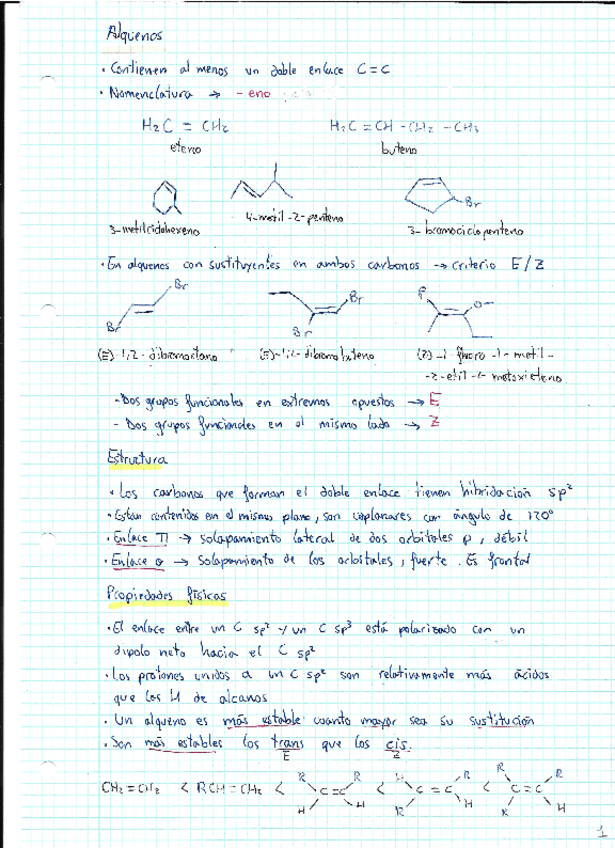 Alquenos
· Contienen al menos un doble enlace C=C
· Nomenclatura → -eno
H₂C = CH₂
H₂C = CH - CH₂ - CH₃
eteno
buteno
Br
3-metilciclohexeno
4-metil-2-penteno
3-bromociclopenteno
· En alquenos con sustituyentes en ambos carbonos → criterio E/Z
Br
Br
Br
Br
F
O
(E)-1,2-dibromoetano
(E)-1,2-dibromobuteno
(Z)-1-fluoro-1-metil-
-2-etil-2-metoxieteno
- Dos grupos funcionales en extremos opuestos → E
- Dos grupos funcionales en el mismo lado → Z
Estructura
· Los carbonos que forman el doble enlace tienen hibridación sp²
· Estan contenidos en el mismo plano, son coplanares con ángulo de 120°
· Enlace π → solapamiento lateral de dos orbitales p, débil
· Enlace σ → solapamiento de los orbitales, fuerte. Es frontal
Propiedades físicas
· El enlace entre un C sp² y un C sp³ está polarizado con un
dipolo neto hacia el C sp²
· Los protones unidos a un C sp² son relativamente más ácidos
que los H de alcanos
· Un alqueno es más estable cuanto mayor sea su sustitución
· Son más estables los trans que los cis.
E
Z
CH₂=CH₂ < RCH=CH₂ < R R C=C H H < H R C=C R H < R R C=C R H
1